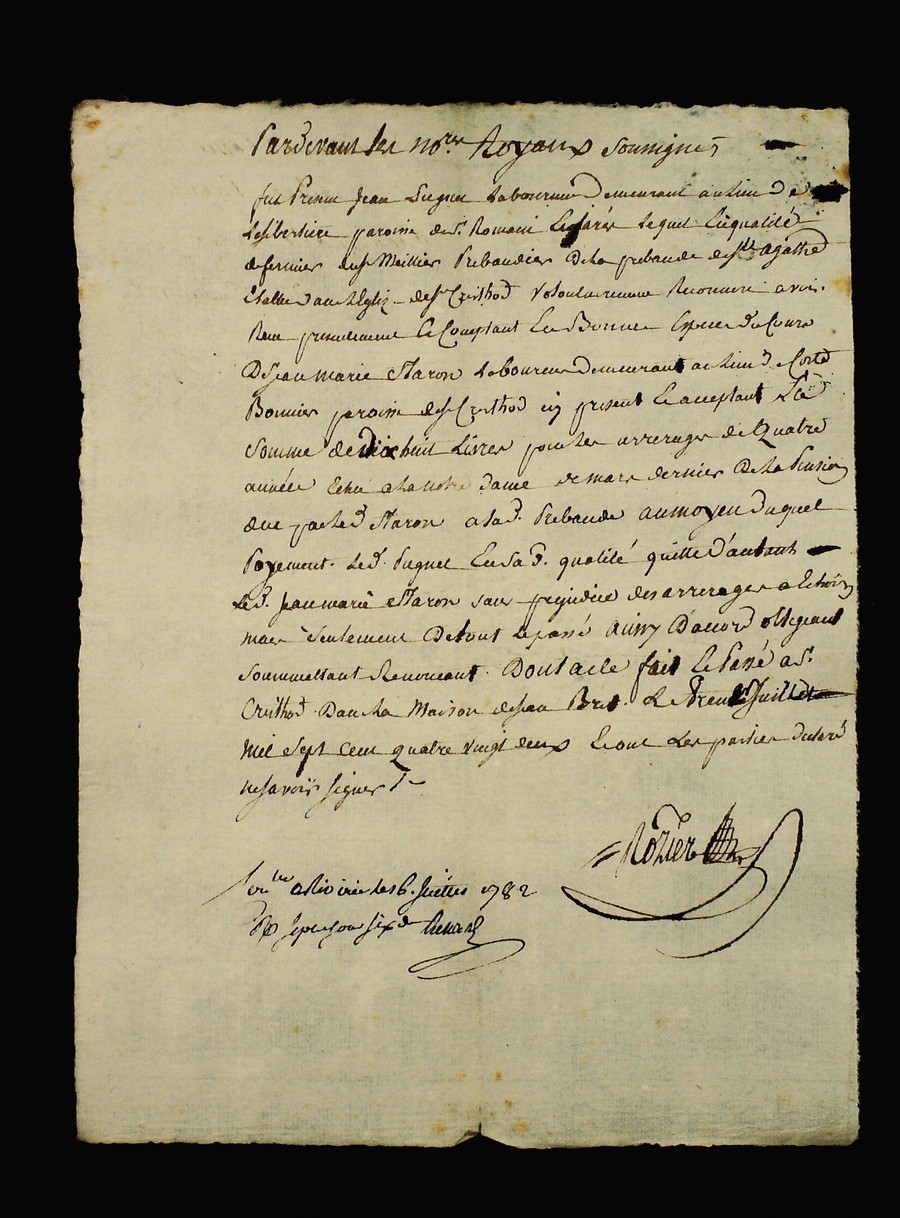 Pardevant les no.res Royaux soussignés
fut Présent Jean Puguet Laboureur Demeurant au Lieu De
paroisse de St. Romain Lequel En qualité
de fermier de Prebandier De La prebande de Ste Agathe
En L'Eglise de St Cristhod volontairement Reconnu avoir
Reçu presentement Et Comptant En Bonnes Espèces du Cours
De Jean marie Staron Laboureur Demeurant au Lieu de
Bonnier paroisse de St Cristhod icy présent Et acceptant La
Somme de Dix huit Livres pour Les arrerages de Quatre
année Echu a La notre dame de mars dernier De La Pension
due par Led. Staron a Lad. Prebande au moyen Duquel
Payement. Led. Puguet En Sad. qualité quitte D'autant
Led. Jean marie Staron sans prejudice des arrerages a Echoir
mais Seulement De tout Le passé ainsy D'accord obligeant
Soummettant Renonceant. Dont acte fait Et Passé a St.
Cristhod. Dans La Maison de Jean Le Juillet
mil sept cent quatre vingt deux Et ont Les parties declaré
ne savoir signer
Rozier
le 6. Juillet 1782
R sept sous six d.